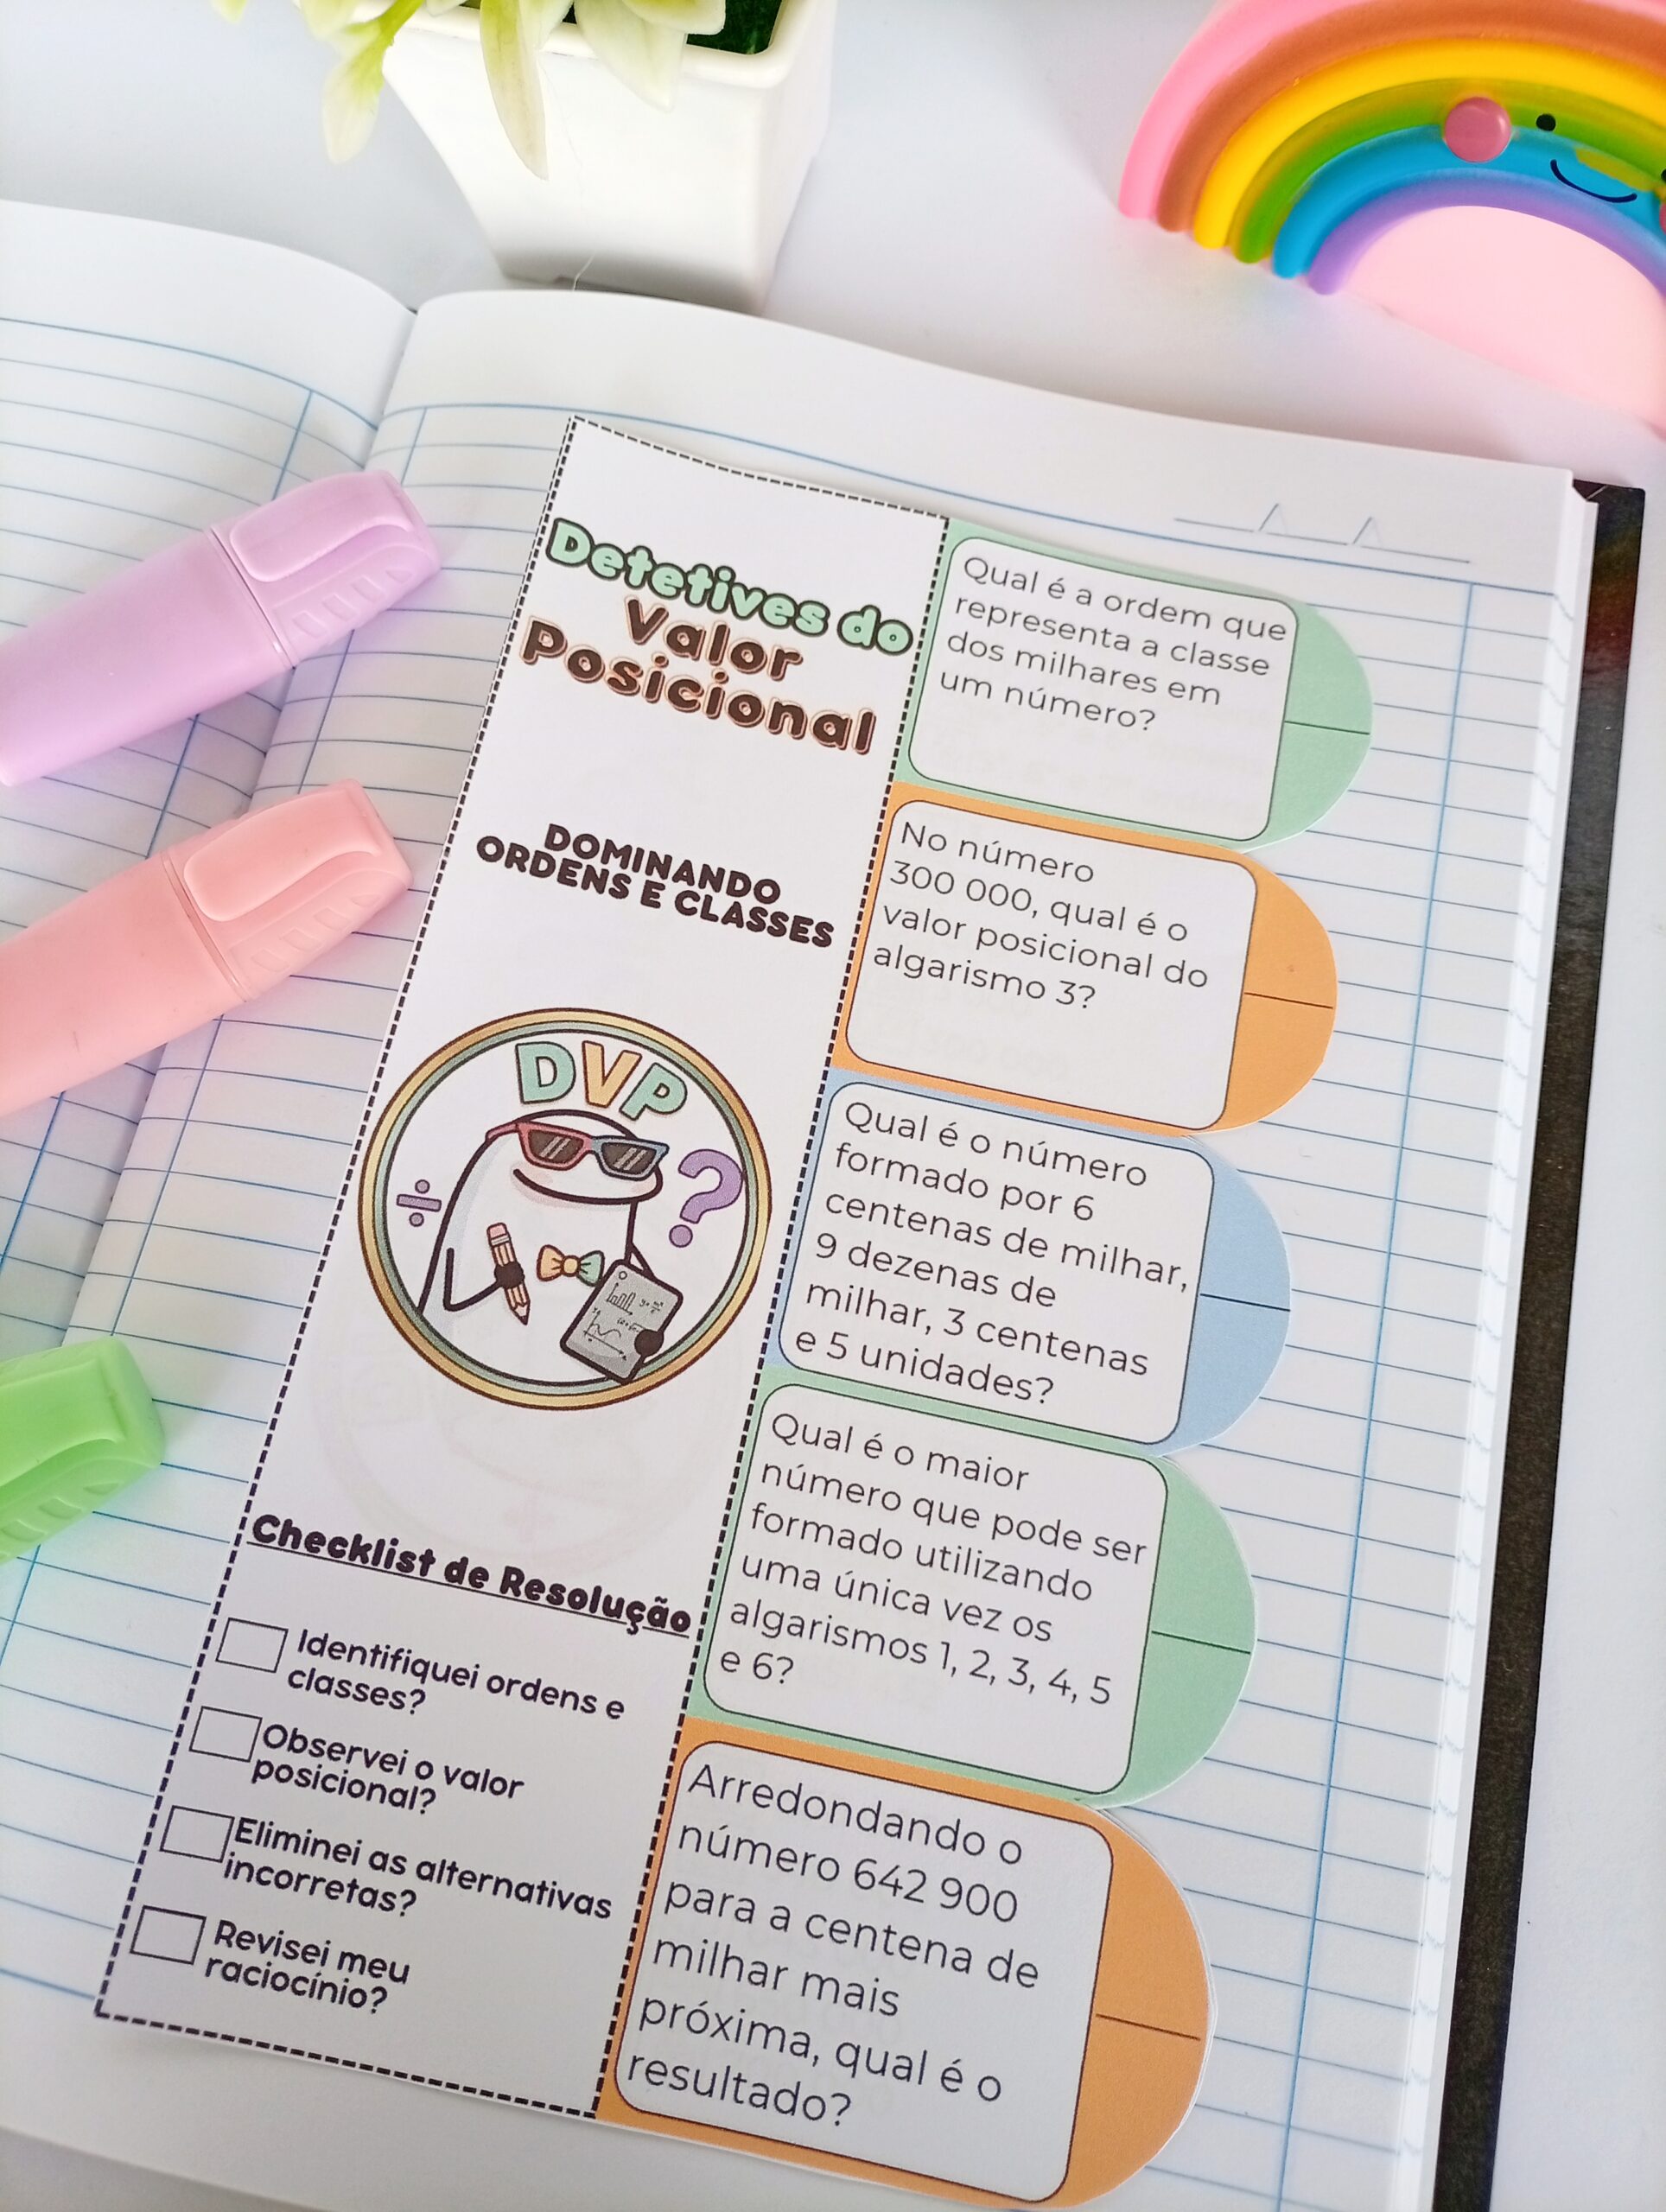 Detetives do
Valor
Posicional
DOMINANDO
ORDENS E CLASSES
DVP
Checklist de Resolução
Identifiquei ordens e
classes?
Observei o valor
posicional?
Eliminei as alternativas
incorretas?
Revisei meu
raciocínio?
Qual é a ordem que
representa a classe
dos milhares em
um número?
No número
300 000, qual é o
valor posicional do
algarismo 3?
Qual é o número
formado por 6
centenas de milhar,
9 dezenas de
milhar, 3 centenas
e 5 unidades?
Qual é o maior
número que pode ser
formado utilizando
uma única vez os
algarismos 1, 2, 3, 4, 5
e 6?
Arredondando o
número 642 900
para a centena de
milhar mais
próxima, qual é o
resultado?